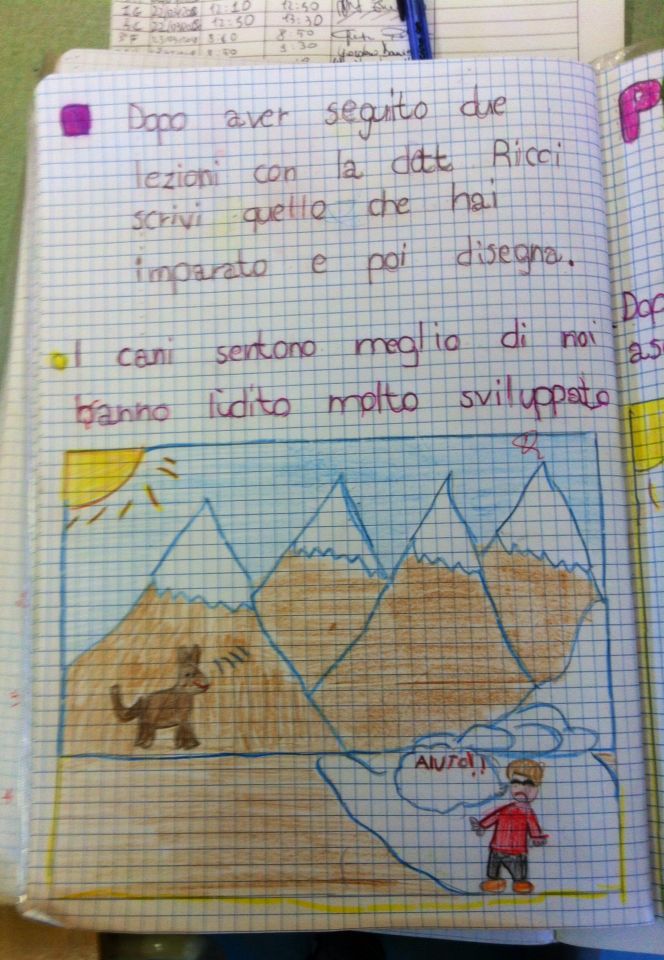 12:10 12:50
12:50 13:30
8:50
9:30
Dopo aver seguito due
lezioni con la dott Ricci
scrivi quello che hai
imparato e poi disegna.
I cani sentono meglio di noi
hanno l'udito molto sviluppato
AIUTO!!
P
Dop
as